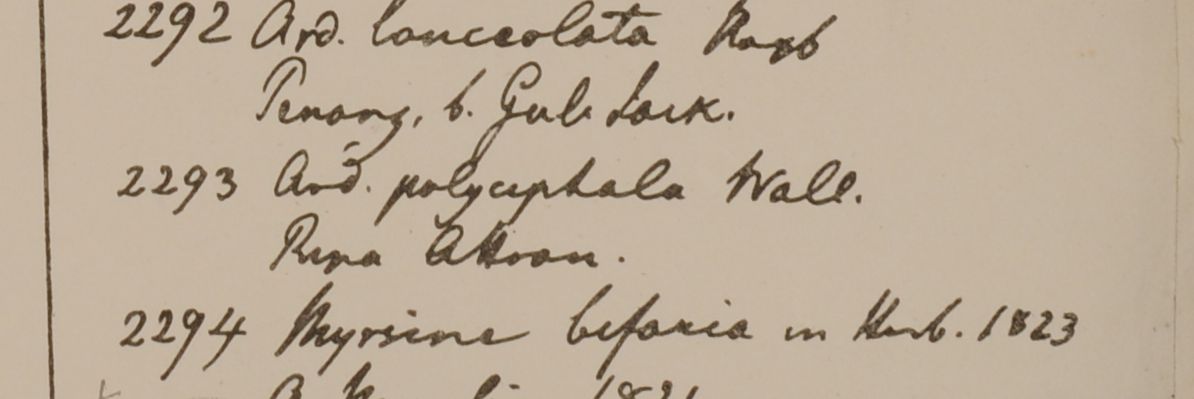 2292 Ard. lanceolata Roxb
Penang, b. Gul. Jack.
2293 Ard. polycephala Wall.
Ripa Attran.
2294 Myrsine bifaria in Herb. 1823
1821